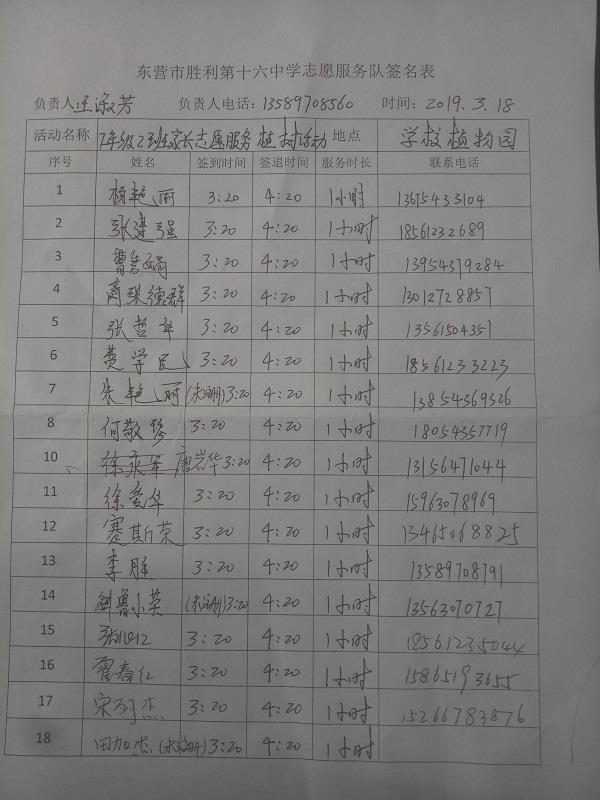 东营市胜利第十六中学志愿服务队签名表
负责人:王淑芳 负责人电话:13589708560 时间:2019.3.18
活动名称 7年级2班家长志愿服务植树活动 地点 学校植物园
序号 姓名 签到时间 签退时间 服务时长 联系电话
1 杨艳丽 3:20 4:20 1小时 13675433104
2 张建强 3:20 4:20 1小时 18561232689
3 曹 娟 3:20 4:20 1小时 13954379284
4 德群 3:20 4:20 1小时 13012728857
5 张哲军 3:20 4:20 1小时 13561504351
6 黄学民 3:20 4:20 1小时 18561233223
7 朱艳丽 (未注册) 3:20 4:20 1小时 13854369326
8 何敬琴 3:20 4:20 1小时 18054357719
10 徐永军 唐岩华 3:20 4:20 1小时 13156471044
11 徐爱华 3:20 4:20 1小时 15963078969
12 蹇斯荣 3:20 4:20 1小时 13465068825
13 李胜 3:20 4:20 1小时 13589708791
14 鲁小英 (未注册) 3:20 4:20 1小时 13563070727
15 张 3:20 4:20 1小时 18561235044
16 霍春红 3:20 4:20 1小时 15865193655
17 宋 杰 3:20 4:20 1小时 15266783876
18 田加杰 (未注册) 3:20 4:20 1小时